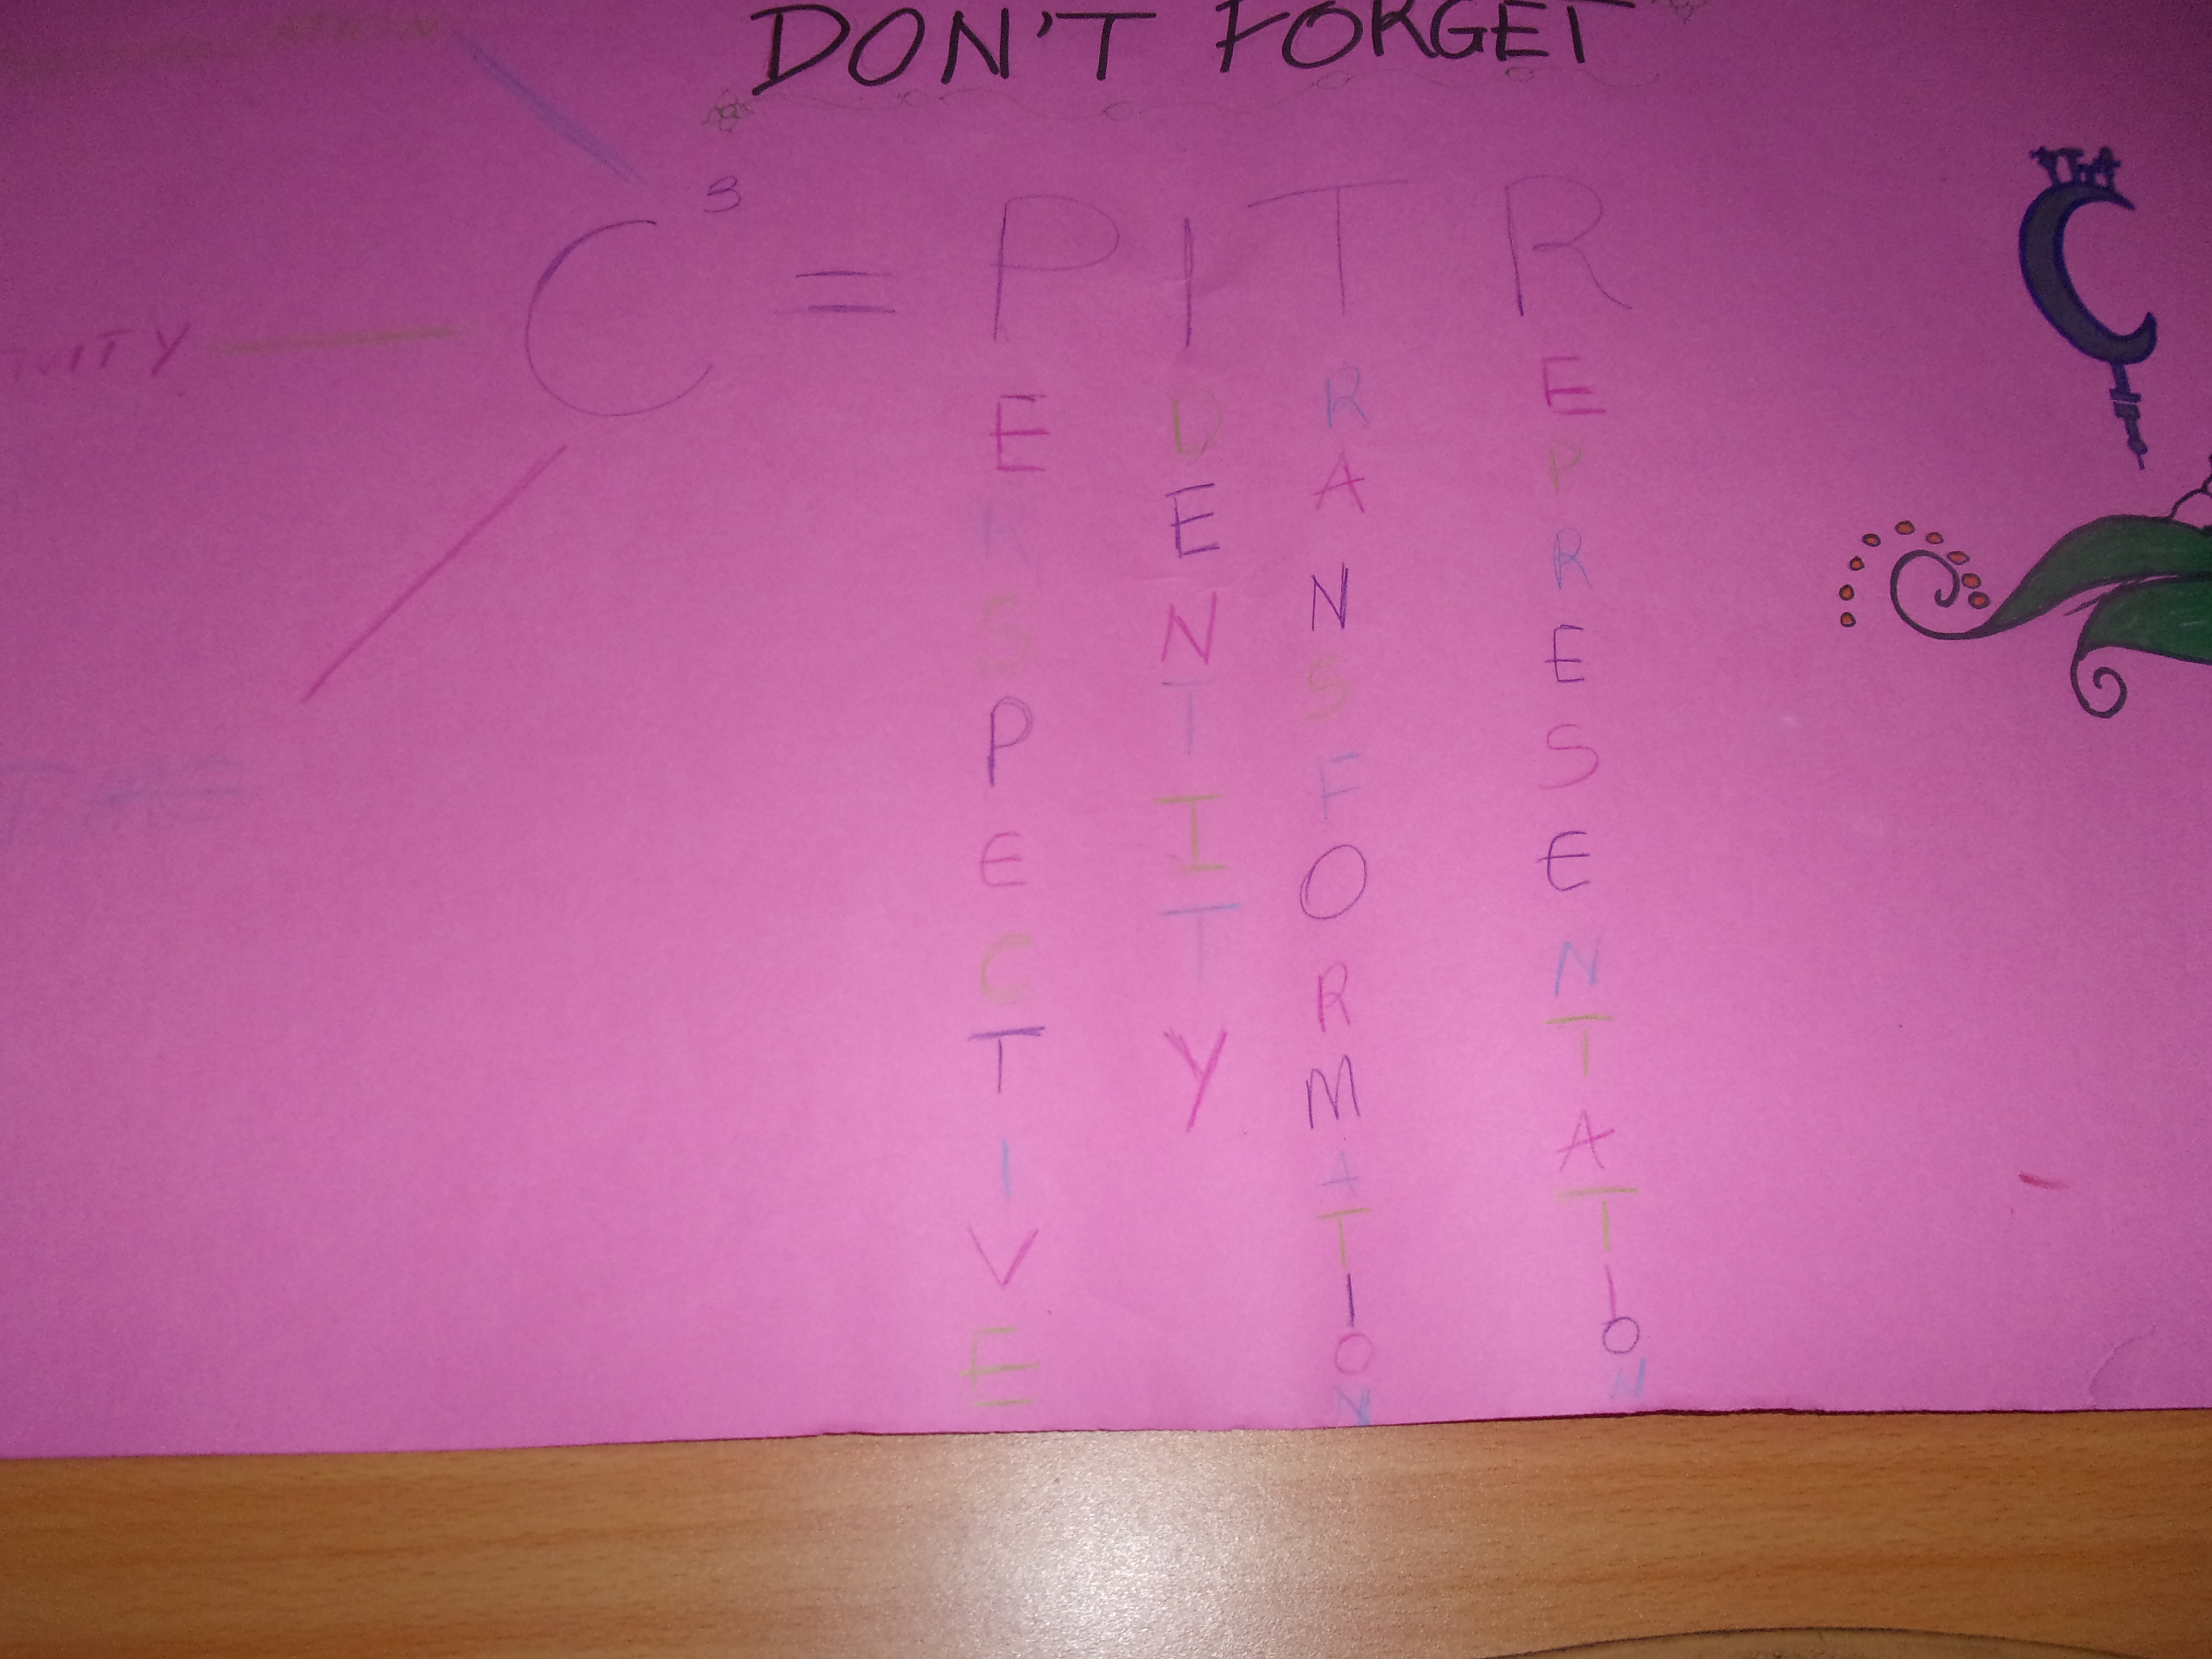 DON'T FORGET
C³ = PITR
PERSPECTIVE
IDENTITY
TRANSFORMATION
REPRESENTATION